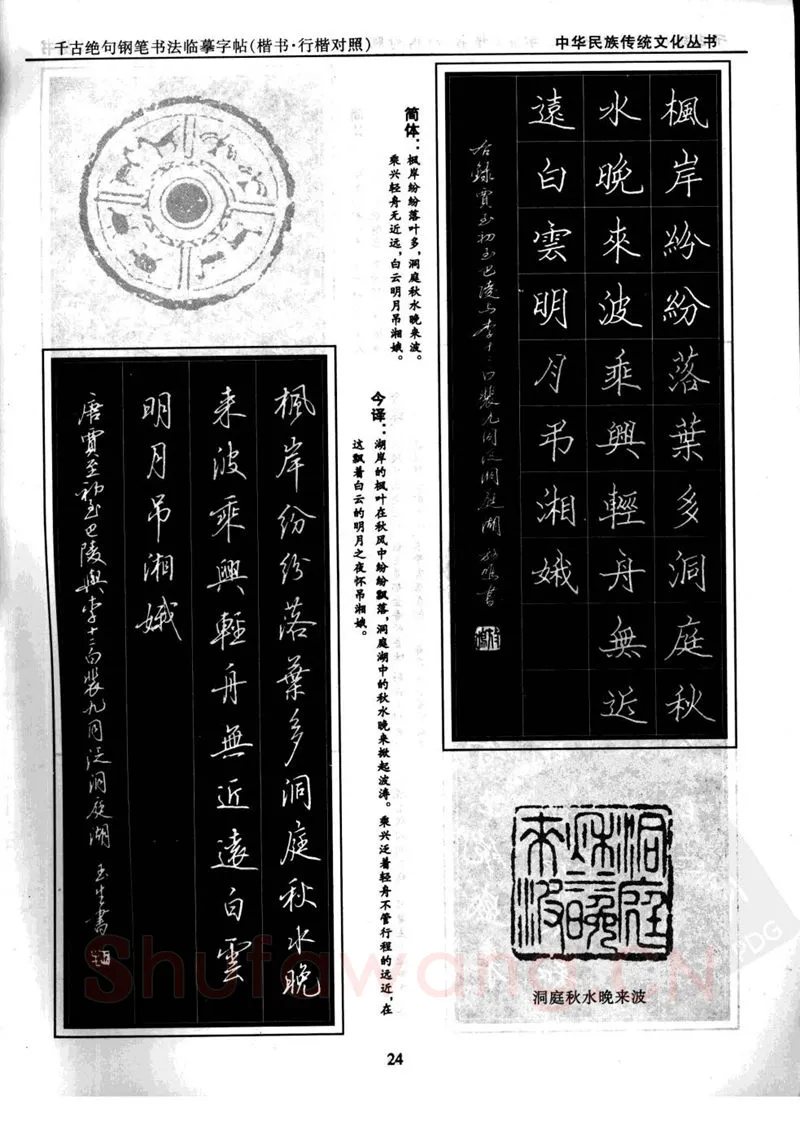 千古绝句钢笔书法临摹字帖(楷书·行楷对照)
中华民族传统文化丛书
楓岸紛紛落葉多洞庭秋
水晚來波乘興輕舟無近
遠白雲明月弔湘娥
右錄賈至初至巴陵与李十二白裴九同泛洞庭湖
書
简体:枫岸纷纷落叶多,洞庭秋水晚来波。
乘兴轻舟无近远,白云明月吊湘娥。
今译:湖岸的枫叶在秋风中纷纷飘落,洞庭湖中的秋水晚来掀起波涛。乘兴泛着轻舟不管行程的远近,在
这飘着白云的明月之夜怀吊湘娥。
楓岸紛紛落葉多洞庭秋水晚
来波乘興輕舟無近遠白雲
明月吊湘娥
唐賈至初至巴陵與李十二白裴九同泛洞庭湖 玉生書
洞庭
秋水晚
来波
洞庭秋水晚来波
Shufawang.CN
24